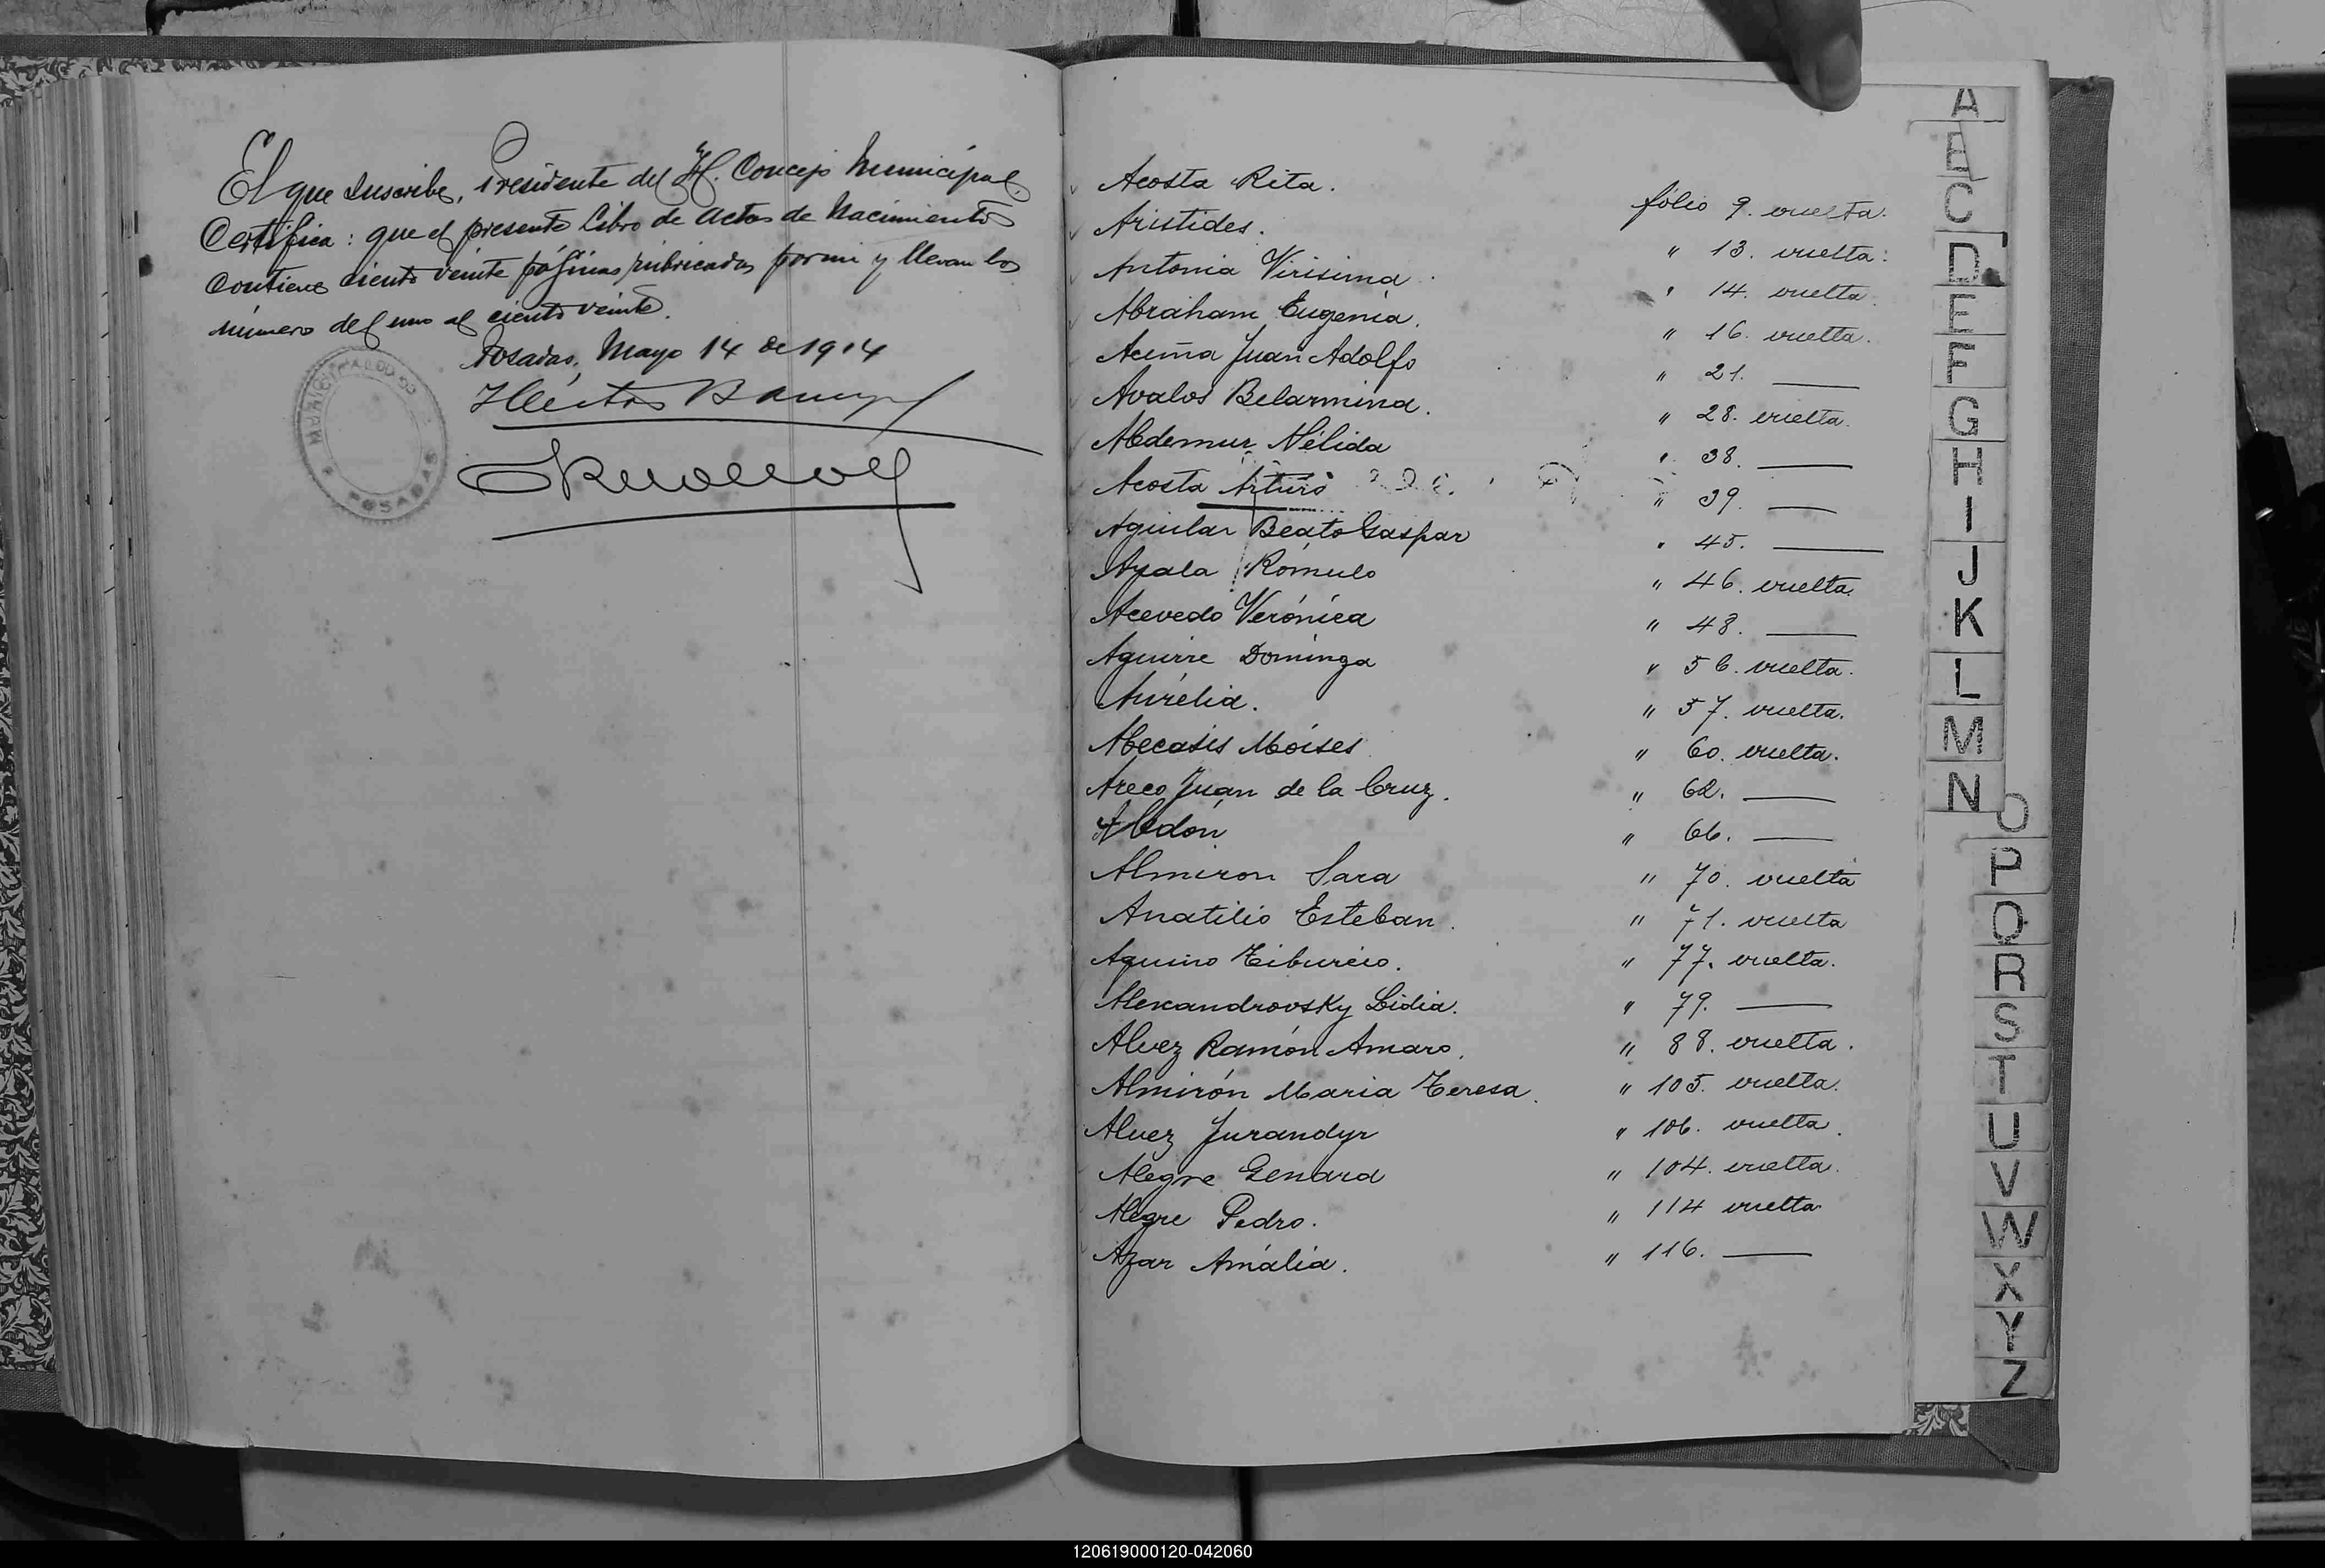 El que suscribe, Presidente del H. Concejo Municipal
Certifica: que el presente Libro de actas de Nacimientos
contiene ciento veinte páginas rubricadas por mi y llevan los
número del uno al ciento veinte.
Posadas, Mayo 14 de 1914
MUNICIPALIDAD DE POSADAS
Acosta Rita. folio 9. vuelta.
Aristides. " 13. vuelta.
Antonia Virisima. " 14. vuelta.
Abraham Eugenia. " 16. vuelta.
Acuña Juan Adolfo " 21. ———
Avalos Belarmina. " 28. vuelta.
Abdemur Nélida " 38. ———
Acosta Arturo " 39. ———
Aguilar Beato Gaspar " 45. ———
Ayala Rómulo " 46. vuelta.
Acevedo Verónica " 48. ———
Aguirre Dominga " 56. vuelta.
Aurelia. " 57. vuelta.
Moises " 60. vuelta.
Areco Juan de la Cruz. " 62. ———
Abdón " 66. ———
Almiron Sara " 70. vuelta
Anatilio Esteban. " 71. vuelta
Aquino Tiburcio. " 77. vuelta.
Alexandrovsky Lidia. " 79. ———
Alvez Ramón Amaro. " 88. vuelta.
Almirón Maria Teresa. " 105. vuelta.
Alvez Jurandyr " 106. vuelta.
Alegre Genara " 104. vuelta.
Alegre Pedro. " 114 vuelta.
Azar Amalia. " 116. ———
A
B
C
D
E
F
G
H
I
J
K
L
M
N
O
P
Q
R
S
T
U
V
W
X
Y
Z
120619000120-042060